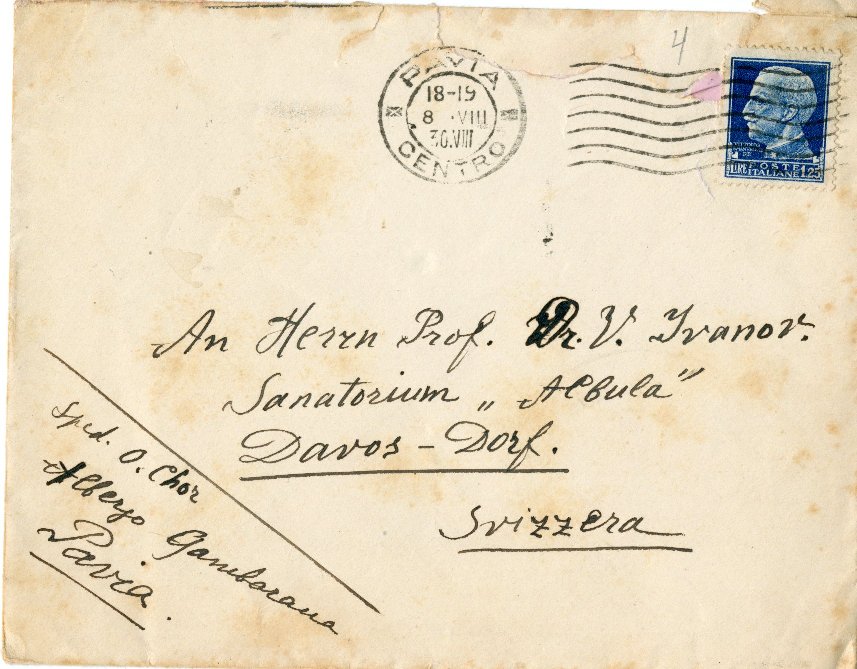 4
PAVIA
18-19
8 · VIII
30.VIII
CENTRO
LIRE POSTE ITALIANE 1.25
An Herrn Prof. Dr. V. Ivanov.
Sanatorium „Albula“
Davos - Dorf.
Svizzera
Sped. O. Chor
Albergo Gambarana
Pavia.